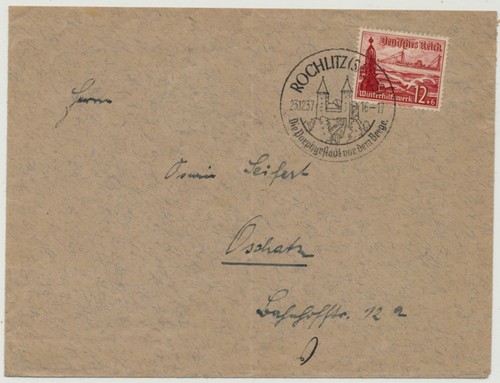 Deutsches Reich
Winterhilfswerk 12+6
ROCHLITZ (S
23.12.37 16-17
Die Porphyrstadt vor dem Berge.
Herrn
Seifert
Oschatz
Bahnhofstr. 12 a